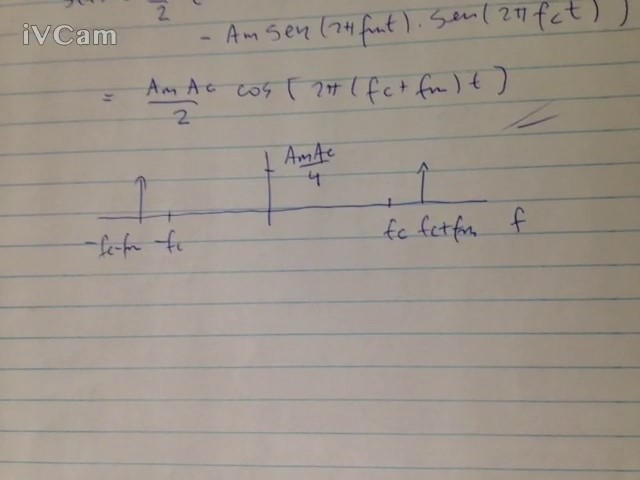 iVCam
2
- Am sen(2π fmt) . sen(2π fct) )
= Am Ac / 2 cos [ 2π (fc + fm) t ]
AmAc / 4
-fc-fm -fc fc fc+fm f